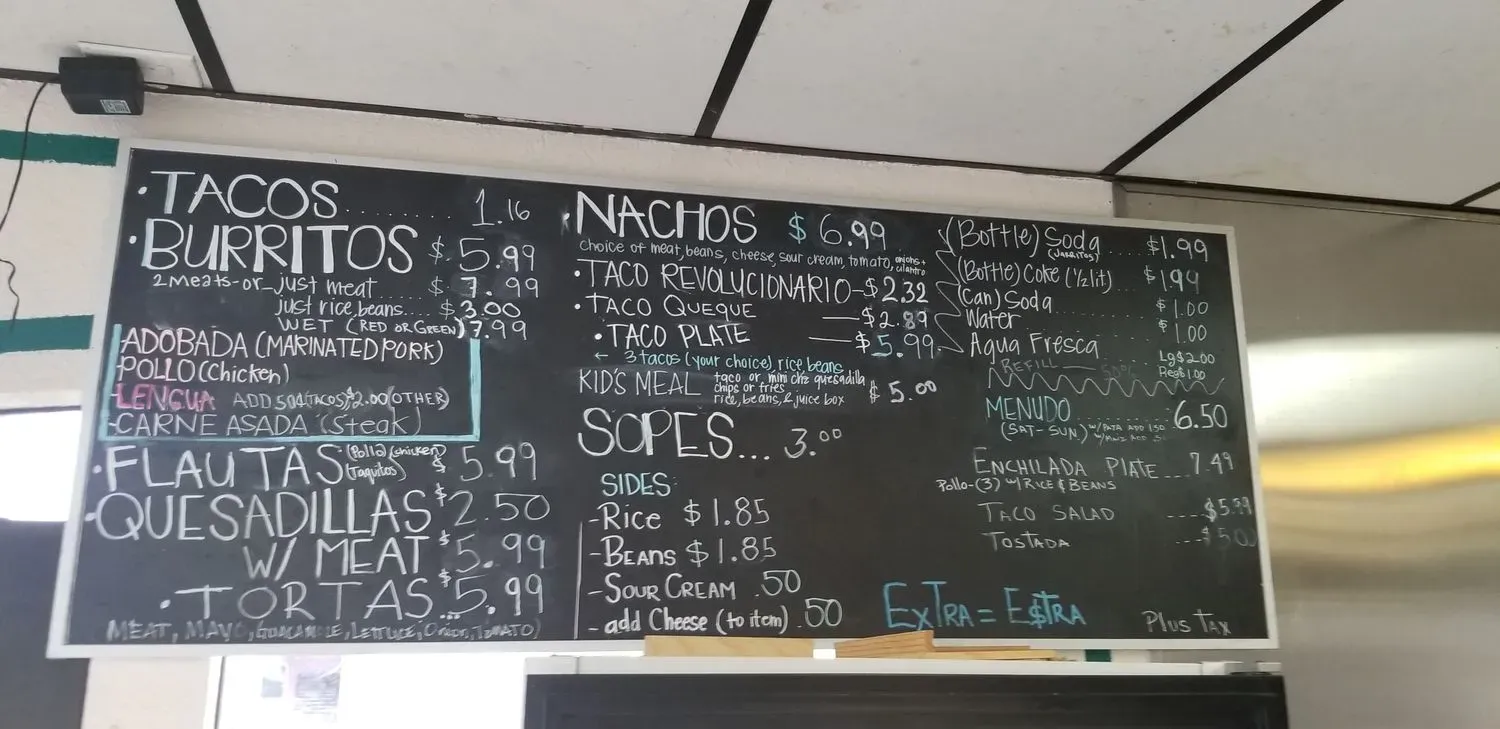 ·TACOS........... 1.16
·BURRITOS $ 5.99
2 meats-or-just meat $ 7.99
just rice, beans.... $ 3.00
WET (RED OR GREEN) 7.99
ADOBADA (MARINATED PORK)
-POLLO (Chicken)
LENGUA ADD 50¢(TACOS) $2.00 (OTHER)
-CARNE ASADA (Steak)
·FLAUTAS (Pollo/chicken) $ 5.99
(Taquitos)
·QUESADILLAS $2.50
W/ MEAT $5.99
·TORTAS... $5.99
MEAT, MAYO, GUACAMOLE, LETTUCE, Onion, TOMATO)
·NACHOS $ 6.99
choice of meat, beans, cheese, sour cream, tomato, onions + cilantro
·TACO REVOLUCIONARIO-$2.32
·TACO QUEQUE —$2.89
·TACO PLATE —$5.99
← 3 tacos (your choice), rice, beans
KID'S MEAL taco or mini chz quesadilla $ 5.00
chips or fries
rice, beans, & juice box
SOPES... 3.00
SIDES:
-Rice $ 1.85
-BEANS $ 1.85
-SOUR CREAM .50
- add Cheese (to item) .50
(Bottle) Soda ... $1.99
(JARRITOS)
(Bottle) Coke (½ lit)... $1.99
(can) Soda........ $ 1.00
Water $ 1.00
Agua Fresca Lg $2.00
Reg $1.00
REFILL — 50¢
MENUDO........... 6.50
(SAT-SUN.) W/PATA ADD
ENCHILADA PLATE... 7.49
Pollo-(3) W/RICE & BEANS
TACO SALAD ----$5.99
TOSTADA ---$
EXTRA = E$TRA
PLUS TAX